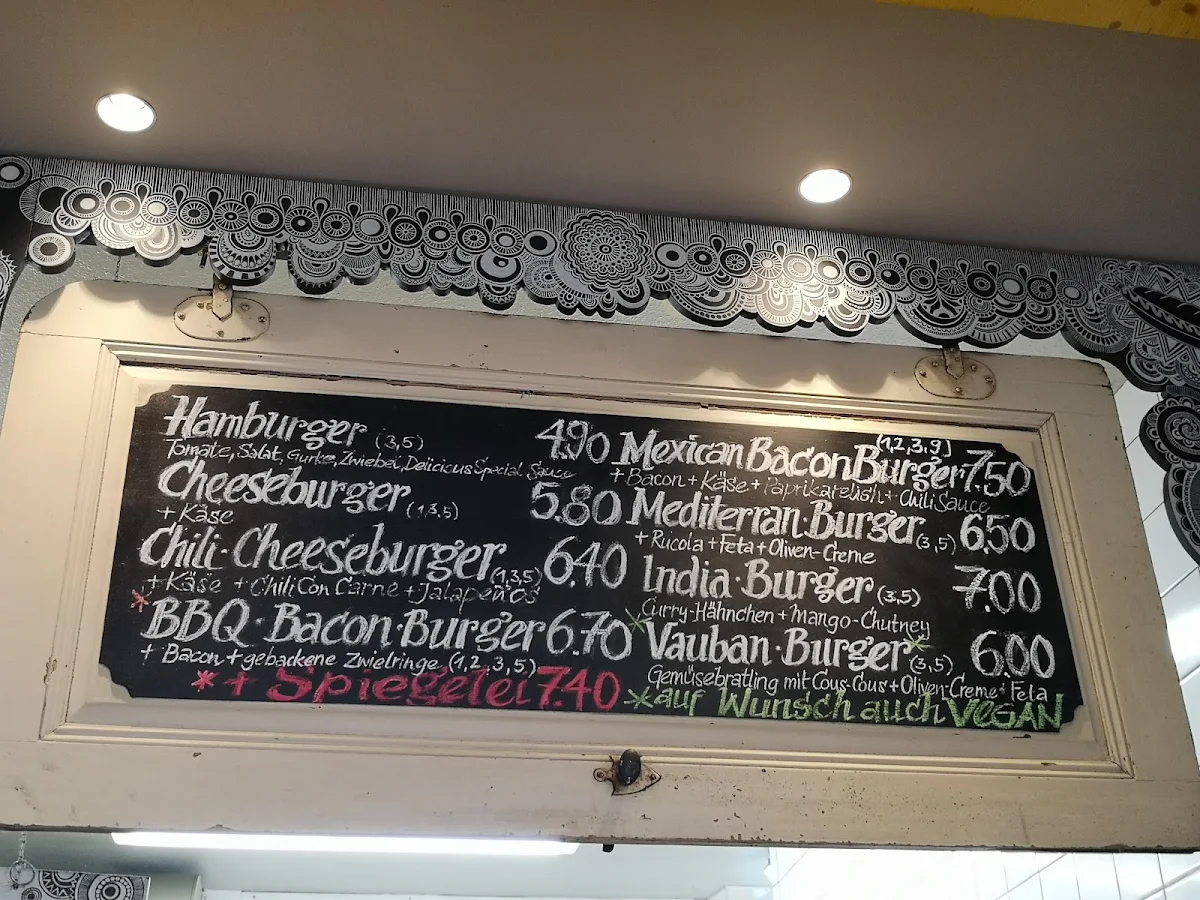 Hamburger (3,5) 4.90
Tomate, Salat, Gurke, Zwiebel, Delicious Special Sauce
Cheeseburger (1,3,5) 5.80
+ Käse
Chili-Cheeseburger (1,3,5) 6.40
+ Käse + Chili Con Carne + Jalapeños
* BBQ-Bacon-Burger 6.70
+ Bacon + gebackene Zwielringe (1,2,3,5)
* + Spiegelei 7.40
Mexican Bacon Burger (1,2,3,9) 7.50
+ Bacon + Käse + Paprikarelish + Chili Sauce
Mediterran-Burger (3,5) 6.50
+ Rucola + Feta + Oliven-Creme
India-Burger (3,5) 7.00
Curry-Hähnchen + Mango-Chutney
* Vauban-Burger* (3,5) 6.00
Gemüsebratling mit Cous-Cous + Oliven-Creme + Feta
* auf Wunsch auch VEGAN